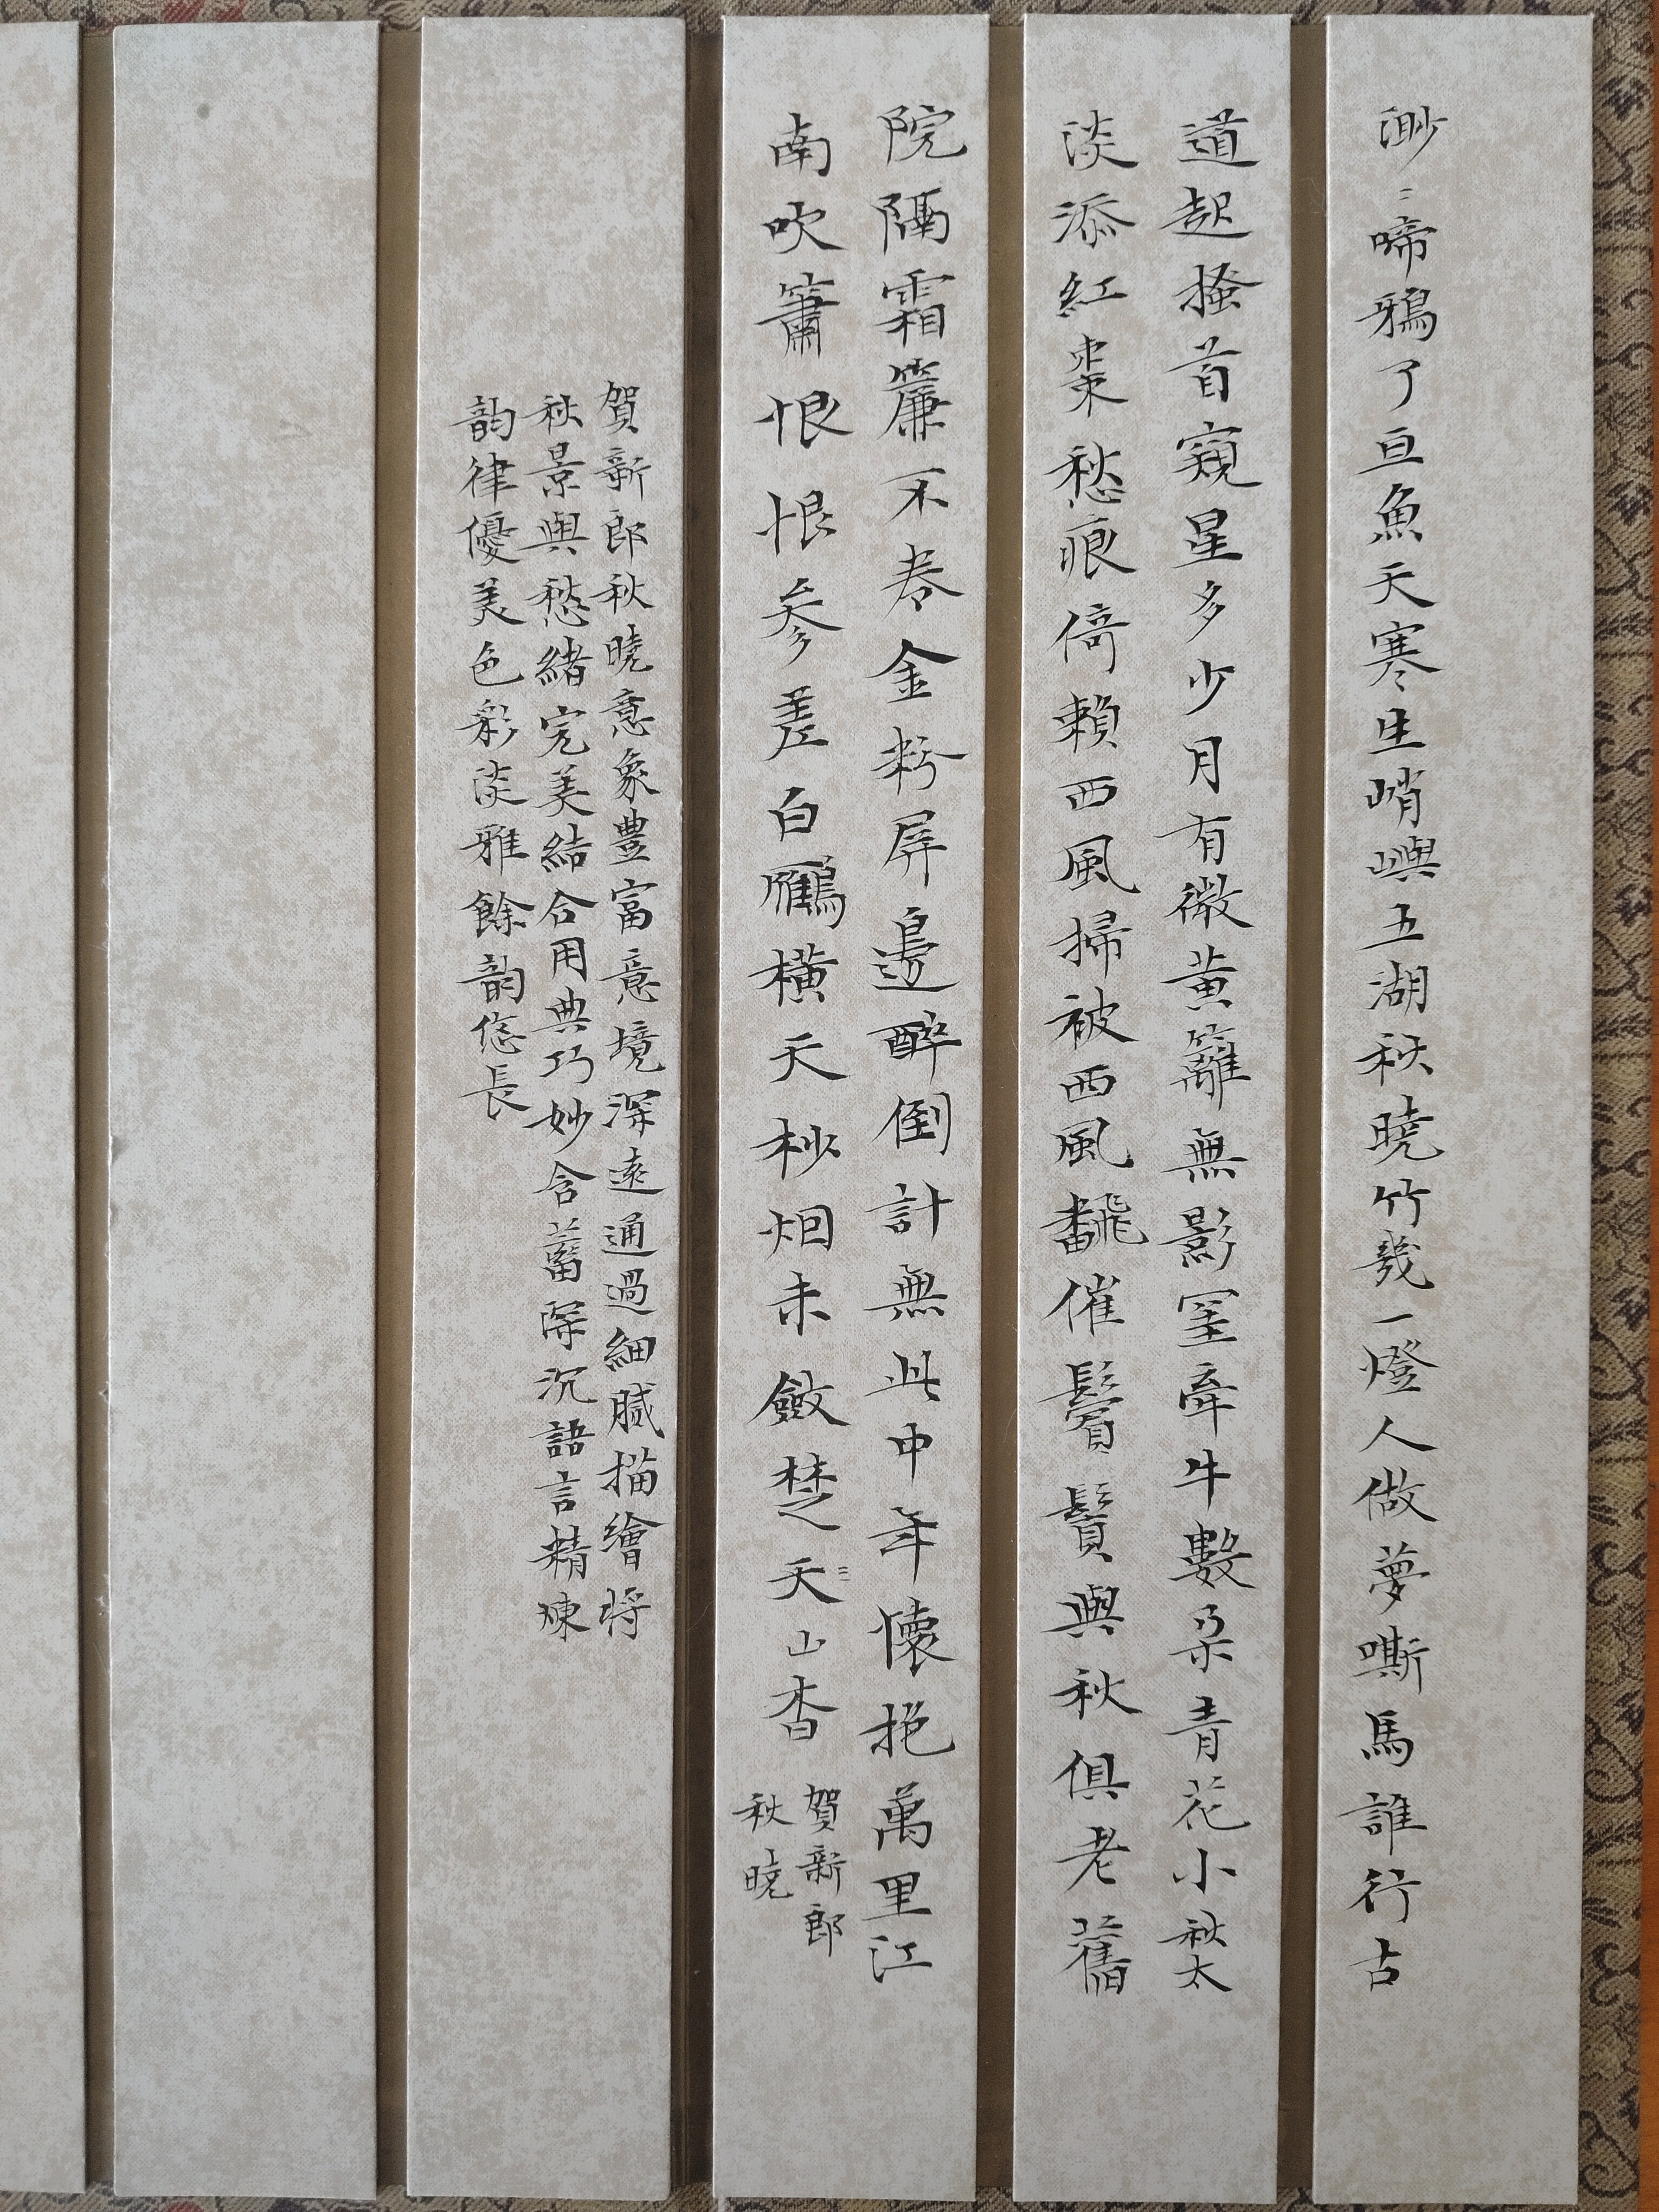 渺〻啼鴉了亘魚天寒生峭嶼五湖秋曉竹幾一燈人做夢嘶馬誰行古
道起搔首窺星多少月有微黃籬無影罣牽牛數朵青花小秋太
淡添紅棗愁痕倚賴西風掃被西風飜催鬢鬒與秋俱老舊
院隔霜簾不卷金粉屏邊醉倒計無此中年懷抱萬里江
南吹簫恨恨參差白鴈橫天杪烟未斂楚天山杳
賀新郎
秋曉
賀新郎秋曉意象豐富意境深遠通過細膩描繪将
秋景與愁緒完美結合用典巧妙含蓄深沉語言精煉
韵律優美色彩淡雅餘韵悠長